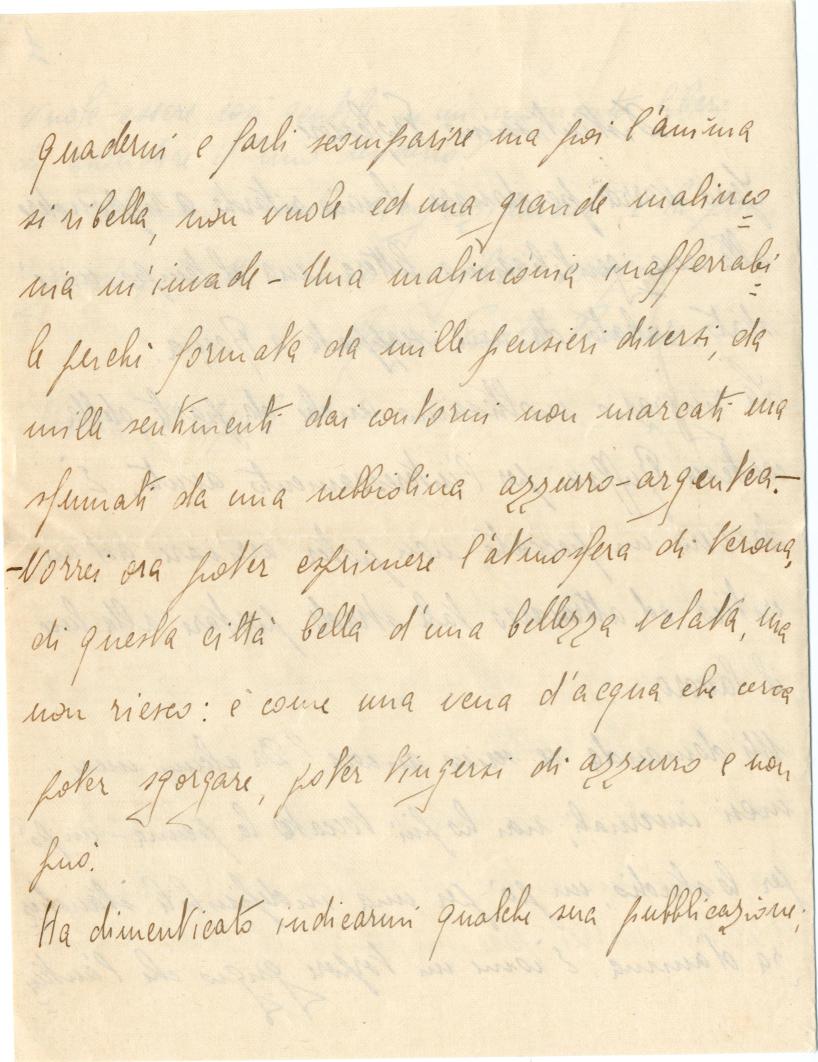 quaderni e farli scomparire ma poi l'anima
si ribella, non vuole ed una grande malinco
nia m'invade - Una malinconia inafferrabi
le perchè formata da mille pensieri diversi, da
mille sentimenti dai contorni non marcati ma
sfumati da una nebbiolina azzurro-argentea. -
- Vorrei ora poter esprimere l'atmosfera di Verona,
di questa città bella d'una bellezza velata, ma
non riesco: è come una vena d'acqua che cerca
poter sgorgare, poter tingersi di azzurro e non
può.
Ha dimenticato indicarmi qualche sua pubblicazione;